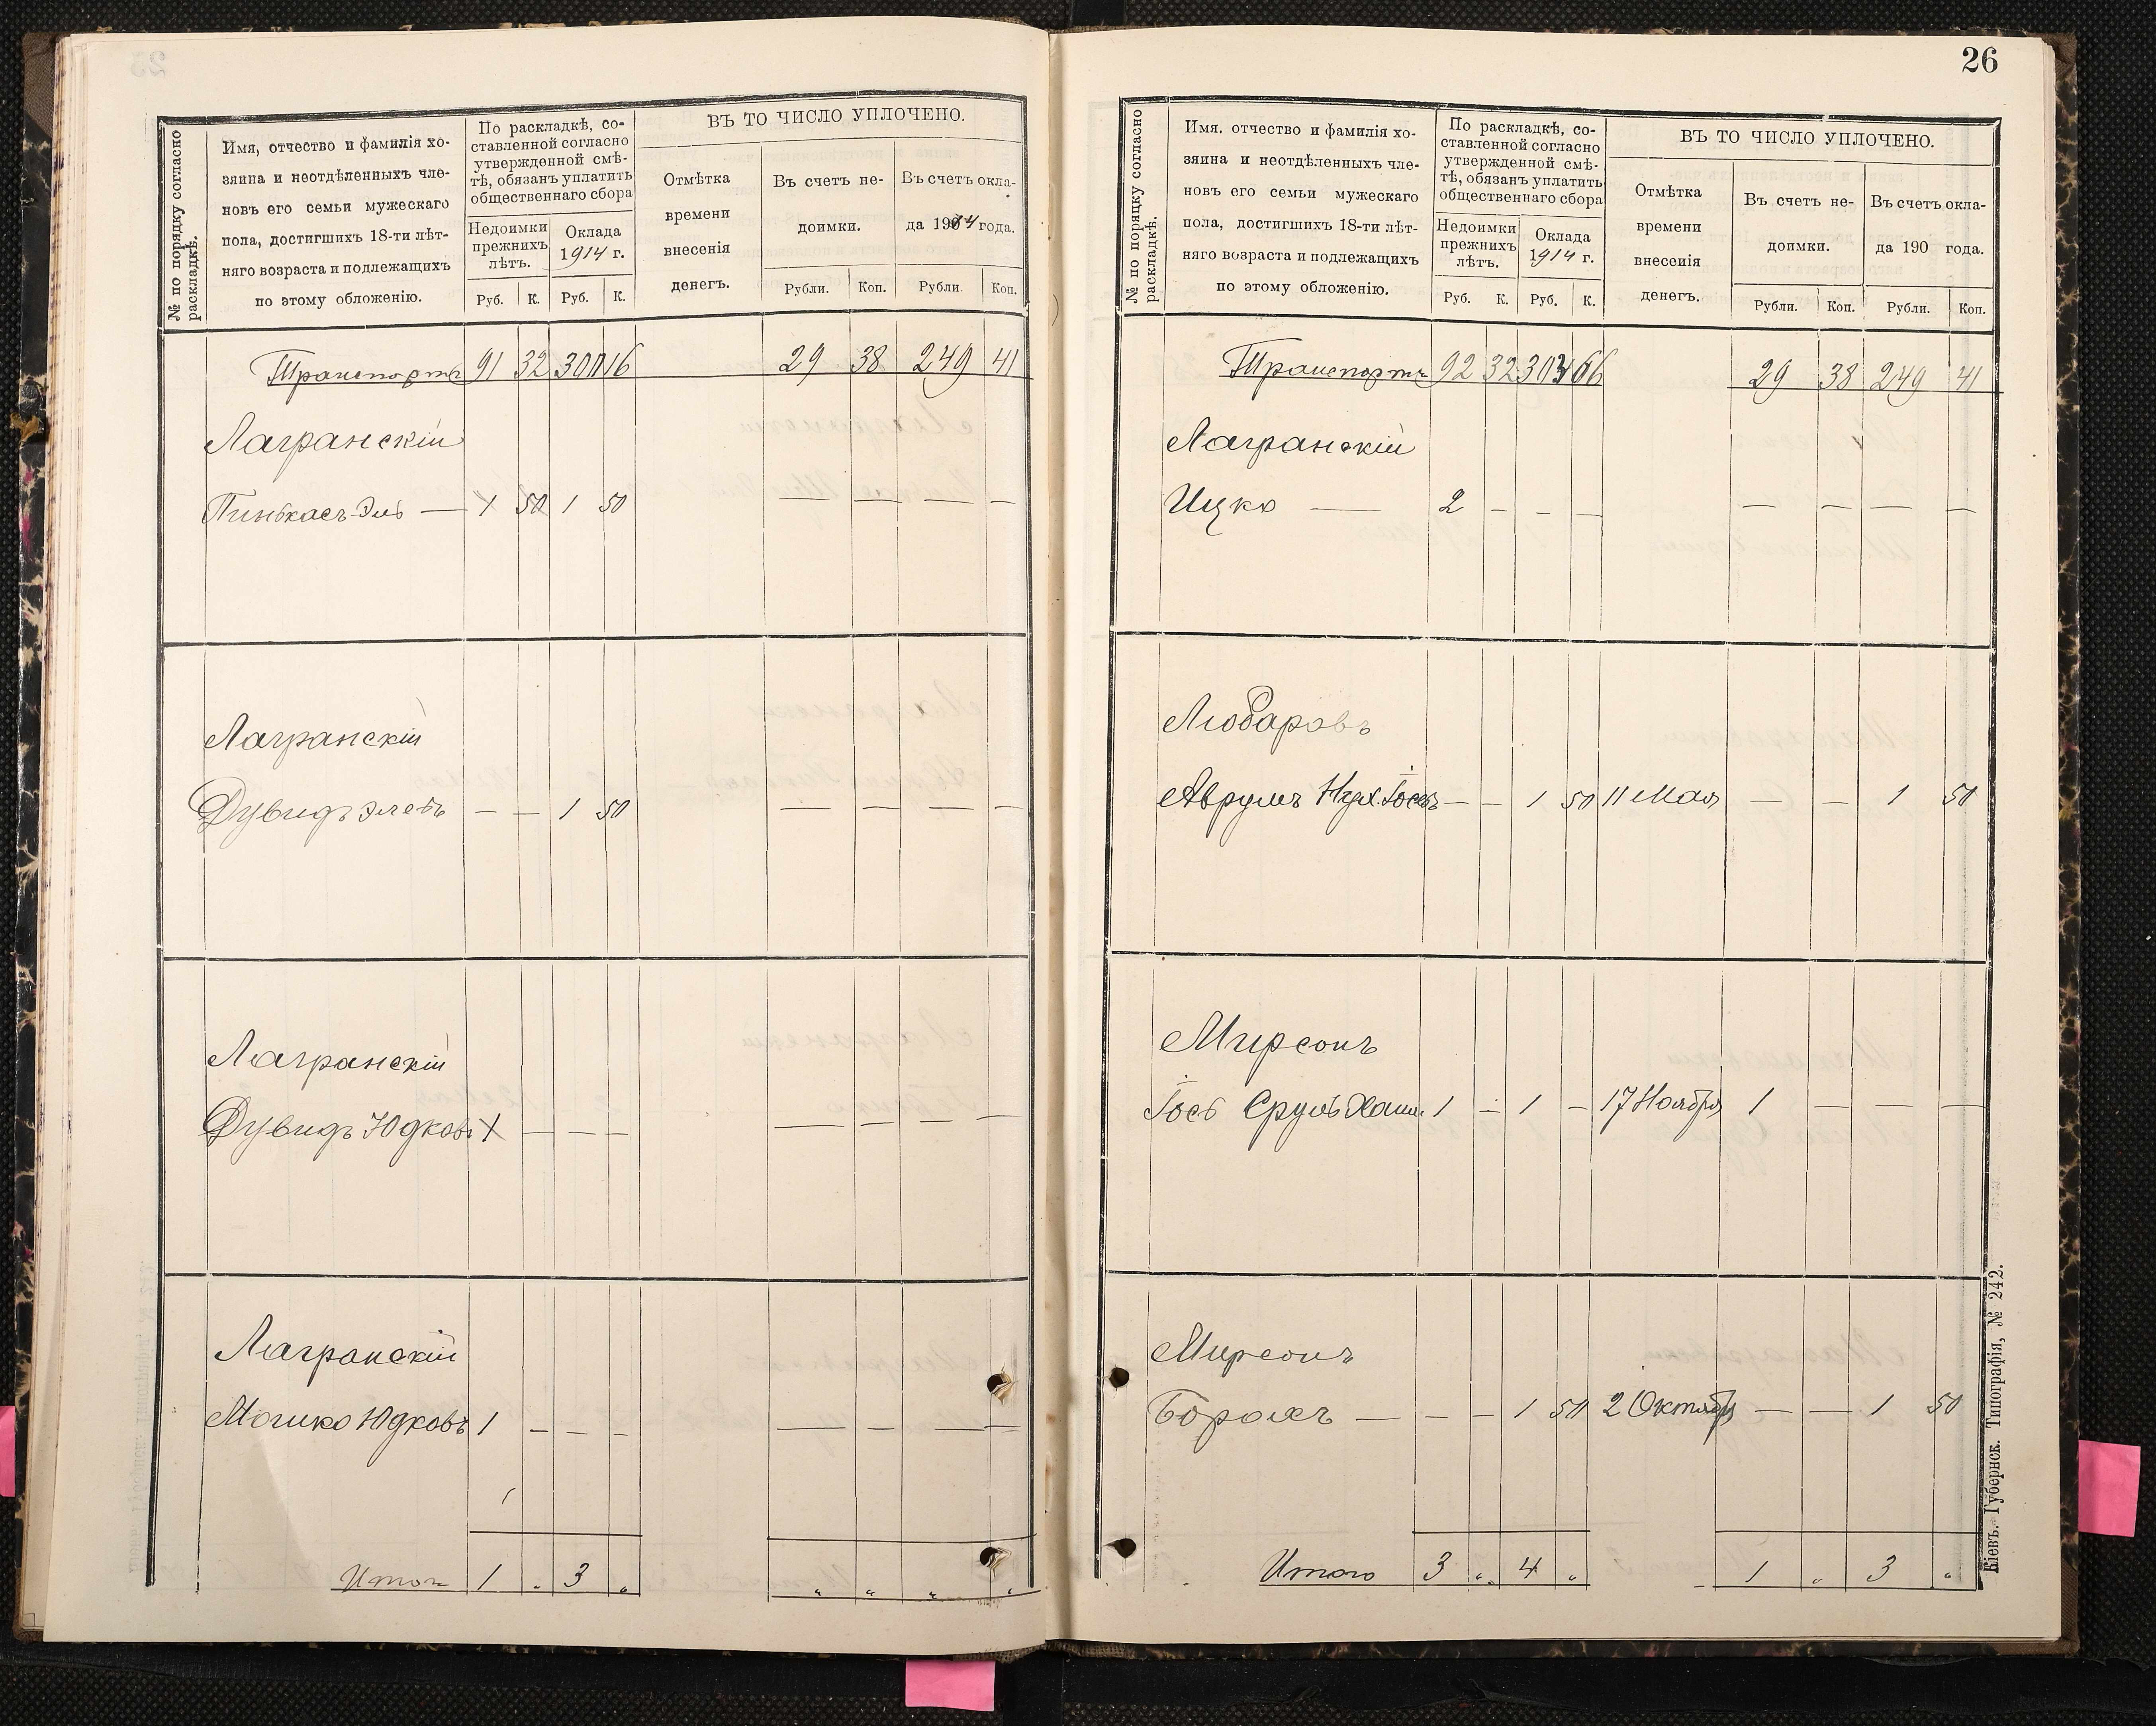 № по порядку согласно
раскладкѣ.
Имя, отчество и фамилія хо-
зяина и неотдѣленныхъ чле-
новъ его семьи мужескаго
пола, достигшихъ 18-ти лѣт-
няго возраста и подлежащихъ
по этому обложенію.
По раскладкѣ, со-
ставленной согласно
утвержденной смѣ-
тѣ, обязанъ уплатить
общественнаго сбора
Недоимки
прежнихъ
лѣтъ.
Оклада
1914 г.
Руб. К. Руб. К.
ВЪ ТО ЧИСЛО УПЛОЧЕНО.
Отмѣтка
времени
внесенія
денегъ.
Въ счетъ не-
доимки.
Въ счетъ окла-
да 1914 года.
Рубли. Коп. Рубли. Коп.
Транспортъ 91 32 300 16 29 38 249 41
Лагранскій
Пинькасъ-Эль — 1 50 1 50 — — — —
Лагранскій
Дувидъ — — 1 50 — — — —
Лагранскій
Дувидъ Юдковъ 1 — — — — — — —
Лагранскій
Мошко Юдковъ 1 — — — — — — —
Итого 1 „ 3 „ „ „ „ „
26
№ по порядку согласно
раскладкѣ.
Имя. отчество и фамилія хо-
зяина и неотдѣленныхъ чле-
новъ его семьи мужескаго
пола, достигшихъ 18-ти лѣт-
няго возраста и подлежащихъ
по этому обложенію.
По раскладкѣ, со-
ставленной согласно
утвержденной смѣ-
тѣ, обязанъ уплатить
общественнаго сбора
Недоимки
прежнихъ
лѣтъ.
Оклада
1914 г.
Руб. К. Руб. К.
ВЪ ТО ЧИСЛО УПЛОЧЕНО.
Отмѣтка
времени
внесенія
денегъ.
Въ счетъ не-
доимки.
Въ счетъ окла-
да 190 года.
Рубли. Коп. Рубли. Коп.
Транспортъ 92 32 303 66 29 38 249 41
Лагранскій
Ицко — 2 — — — — — — —
Любаровъ
Аврумъ Нух. Іосевъ — — 1 50 11 Мая — — 1 50
Мирсонъ
Іось Сруль Хаим. 1 — 1 — 17 Ноября 1 — — —
Мирсонъ
Борохъ — — — 1 50 2 Октября — — 1 50
Итого 3 „ 4 „ 1 „ 3 „
Кіевъ. Губернск. Типографія, № 242.